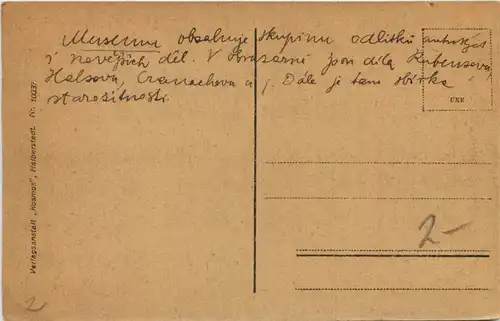 Museum obsahuje skupinu odlitků antických
i novějších děl. V obrazárně jsou díla Rubensova,
Halsova, Cranachova a j. Dále je tam sbírka
starožitností.
UXE
Verlagsanstalt „Kosmos", Halberstadt. Nr. 10037
2-
2